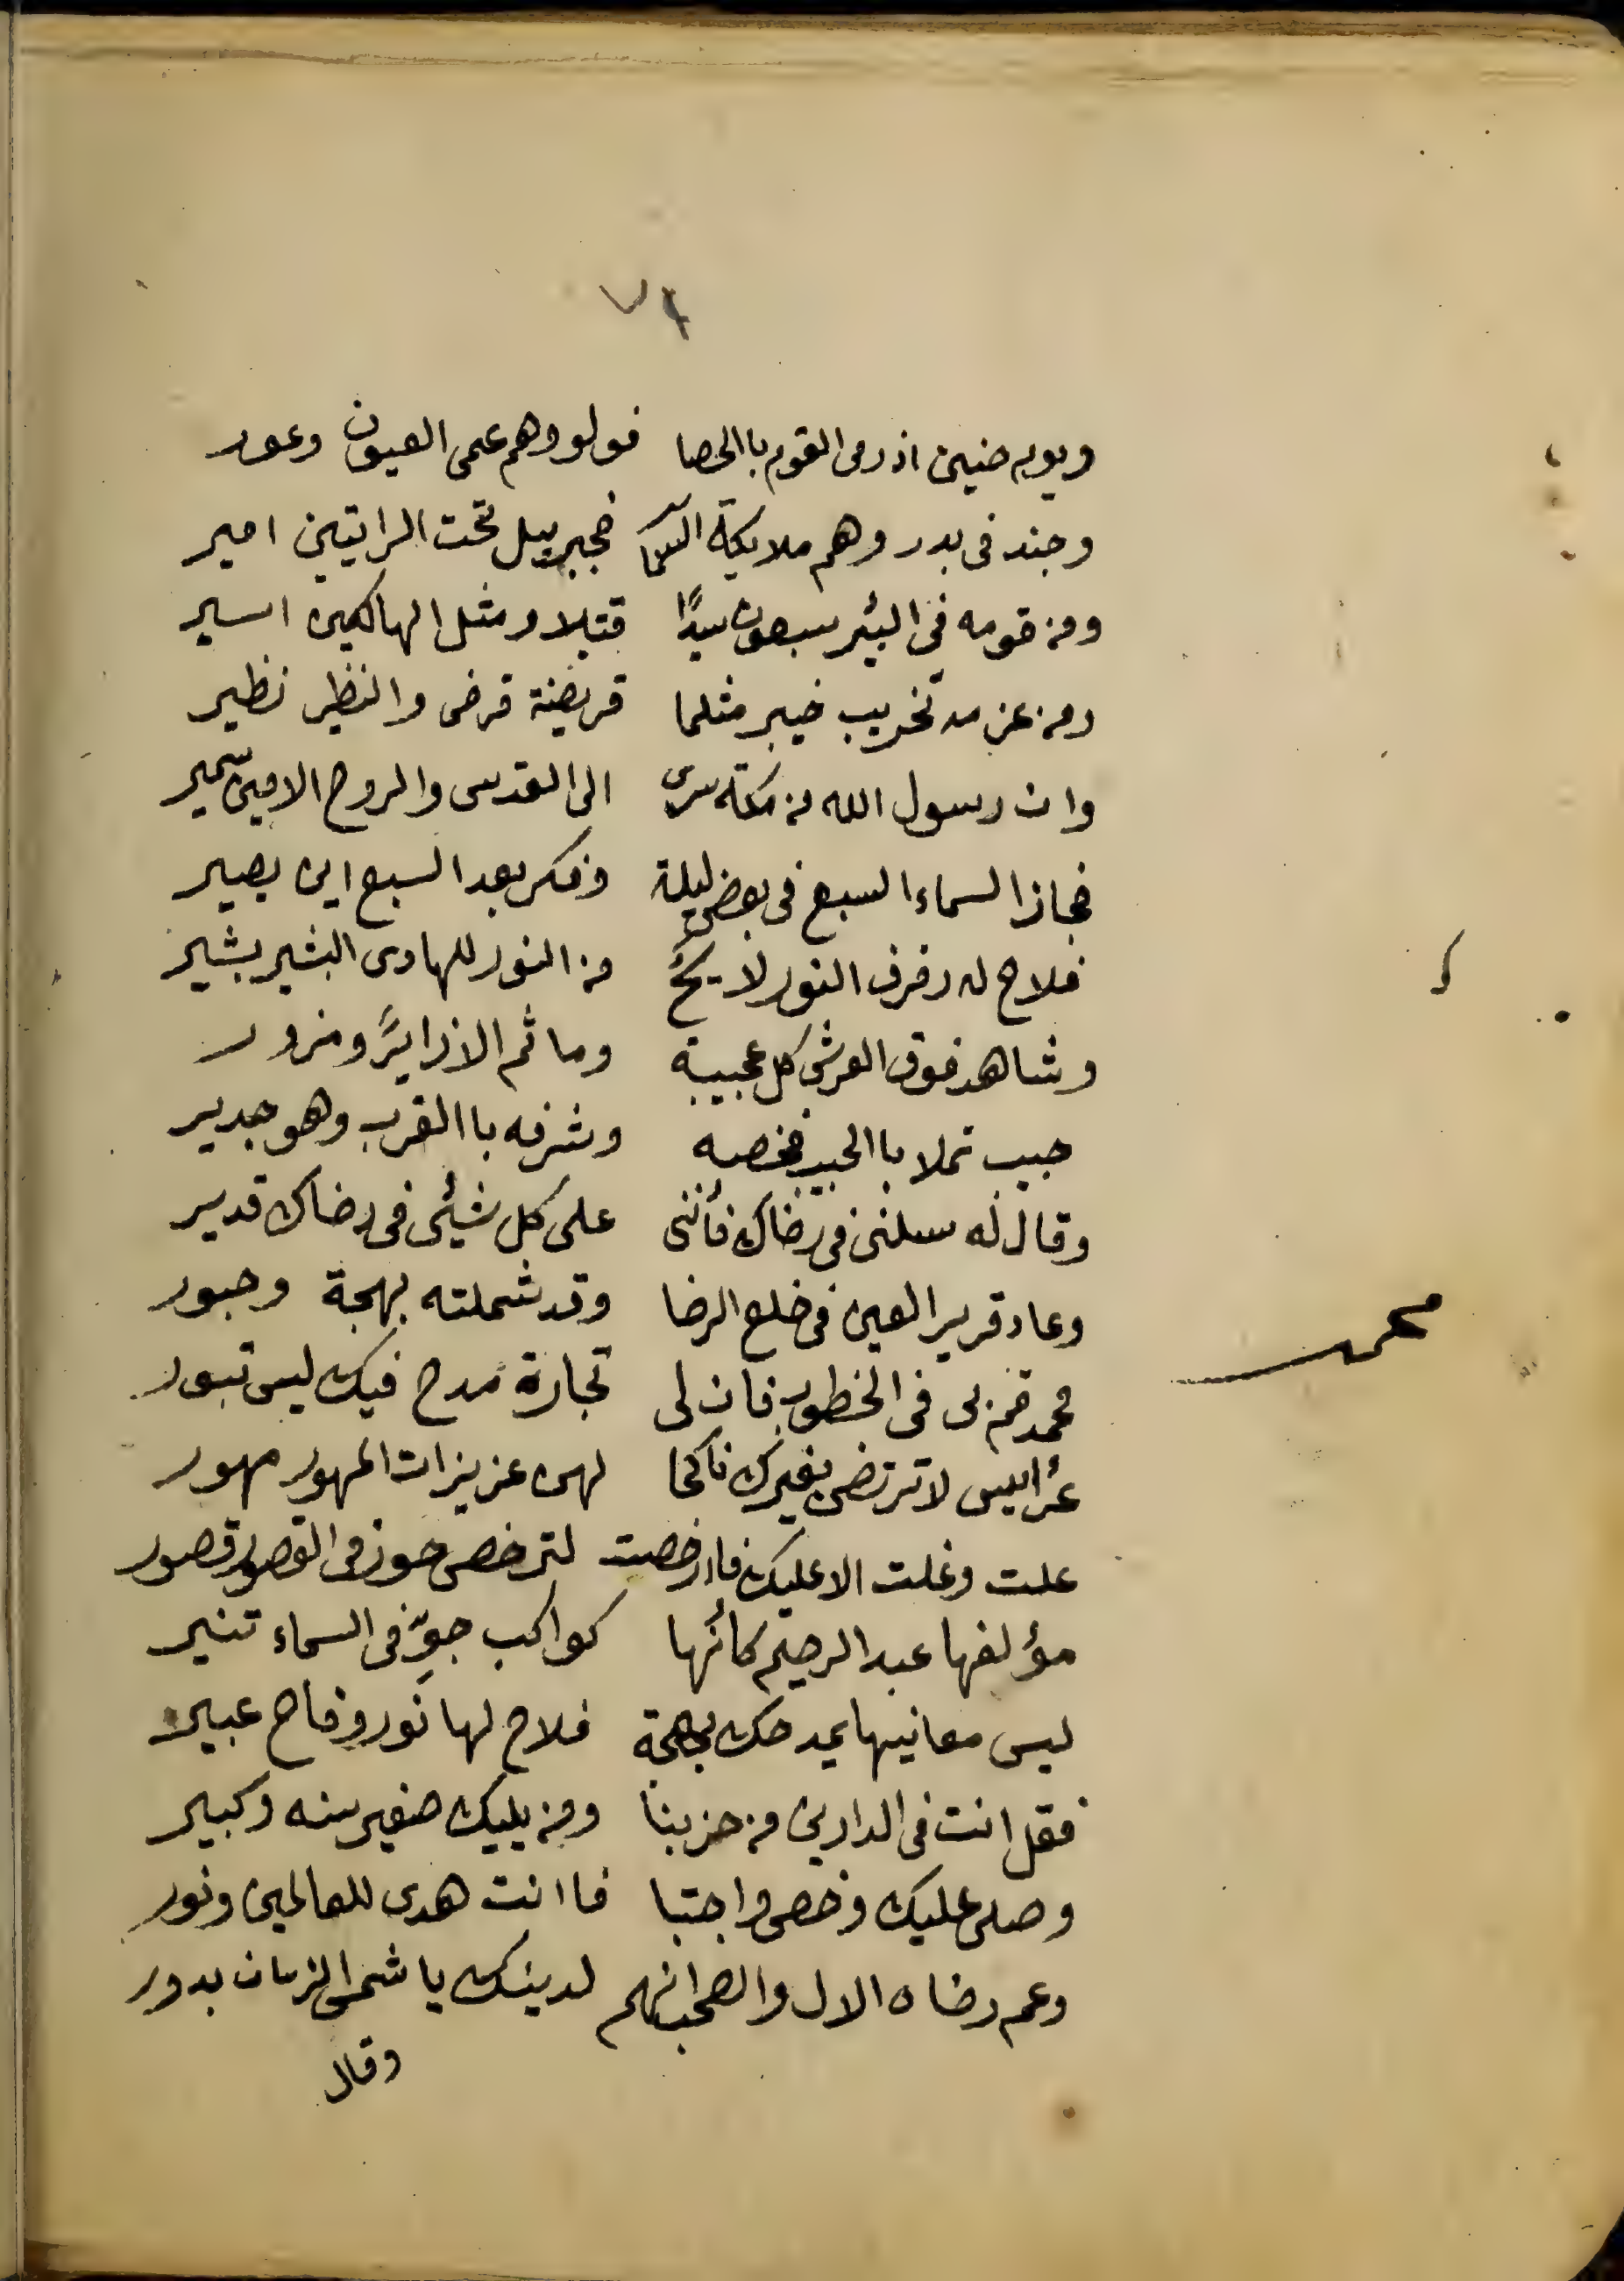 ويوم حنين اذ رمى القوم باالحصا فولو وهم عمى العيون وعور
وجند فى بدر وهم ملايكة السما فجبرييل تحت الرايتين امير
ومن قومه فى البئر سبعون سيدًا قتيلا ومثل الهالكين اسير
ومن عزمه تخريب خيبر مثلما قريضة قرض والنظير نظير
وان رسول الله من مكة سرى الى القدس والروح الامين سمير
فجاز السماء السبع فى بعض ليلة وفكر بعد السبع اين يصير
فلاح له رفرف النور لايحٌ من النور للهادى البشير بشير
وشاهد فوق العرش كل عجيبة وما ثم الا زايرً ومزور
حبيب تملا باالحبيب فخصه وشرفه باالقرب وهو جدير
وقال له سلنى فى رضاك فأننى على كل شيئى فى رضاك قدير
وعاد قرير العين فى خلع الرضا وقد شملته بهجة وحبور
محمد قم بى فى الخطوب فان لى تجارة مدح فيك ليس تبور
عرٔاييس لا ترتضى بغيرك ناكحا لهن عزيزات المهور مهور
علت وغلت الا عليك فاارخصت لترخص حوز فى القصور قصور
مؤلفها عبد الرحيم كأنها كواكب جوٍّ فى السماء تنير
ليس معانيها بمدحك بهجة فلاح لها نور وفاح عبير
فقل انت فى الدارين من حزبنا ومن يليك صغير سنه وكبير
وصلى عليك وخص واجتبا فاانت هدى للعالمين ونور
وعم رضاه الال والصحب انهم لدينك يا شمس الزمان بدور
وقال